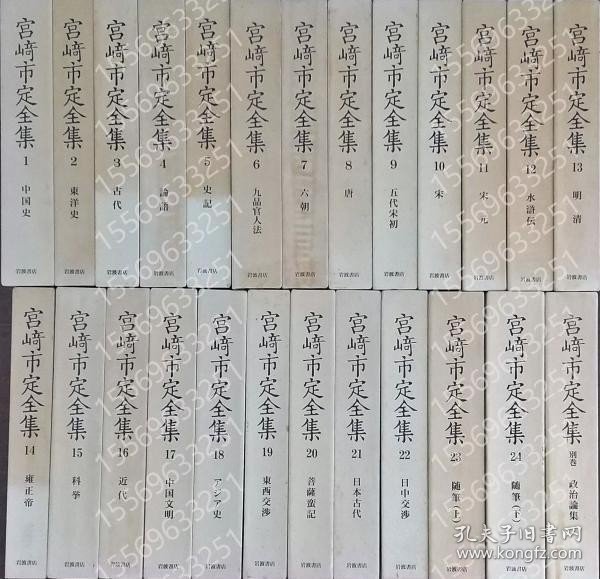 宮﨑市定全集 1 中国史 岩波書店
宮﨑市定全集 2 東洋史 岩波書店
宮﨑市定全集 3 古代 岩波書店
宮﨑市定全集 4 論語 岩波書店
宮﨑市定全集 5 史記 岩波書店
宮﨑市定全集 6 九品官人法 岩波書店
宮﨑市定全集 7 六朝 岩波書店
宮﨑市定全集 8 唐 岩波書店
宮﨑市定全集 9 五代宋初 岩波書店
宮﨑市定全集 10 宋 岩波書店
宮﨑市定全集 11 宋元 岩波書店
宮﨑市定全集 12 水滸伝 岩波書店
宮﨑市定全集 13 明清 岩波書店
宮﨑市定全集 14 雍正帝 岩波書店
宮﨑市定全集 15 科挙 岩波書店
宮﨑市定全集 16 近代 岩波書店
宮﨑市定全集 17 中国文明 岩波書店
宮﨑市定全集 18 アジア史 岩波書店
宮﨑市定全集 19 東西交渉 岩波書店
宮﨑市定全集 20 菩薩蛮記 岩波書店
宮﨑市定全集 21 日本古代 岩波書店
宮﨑市定全集 22 日中交渉 岩波書店
宮﨑市定全集 23 随筆(上) 岩波書店
宮﨑市定全集 24 随筆(下) 岩波書店
宮﨑市定全集 別巻 政治論集 岩波書店
15569633251
孔夫子旧书网
www.kongfz.com